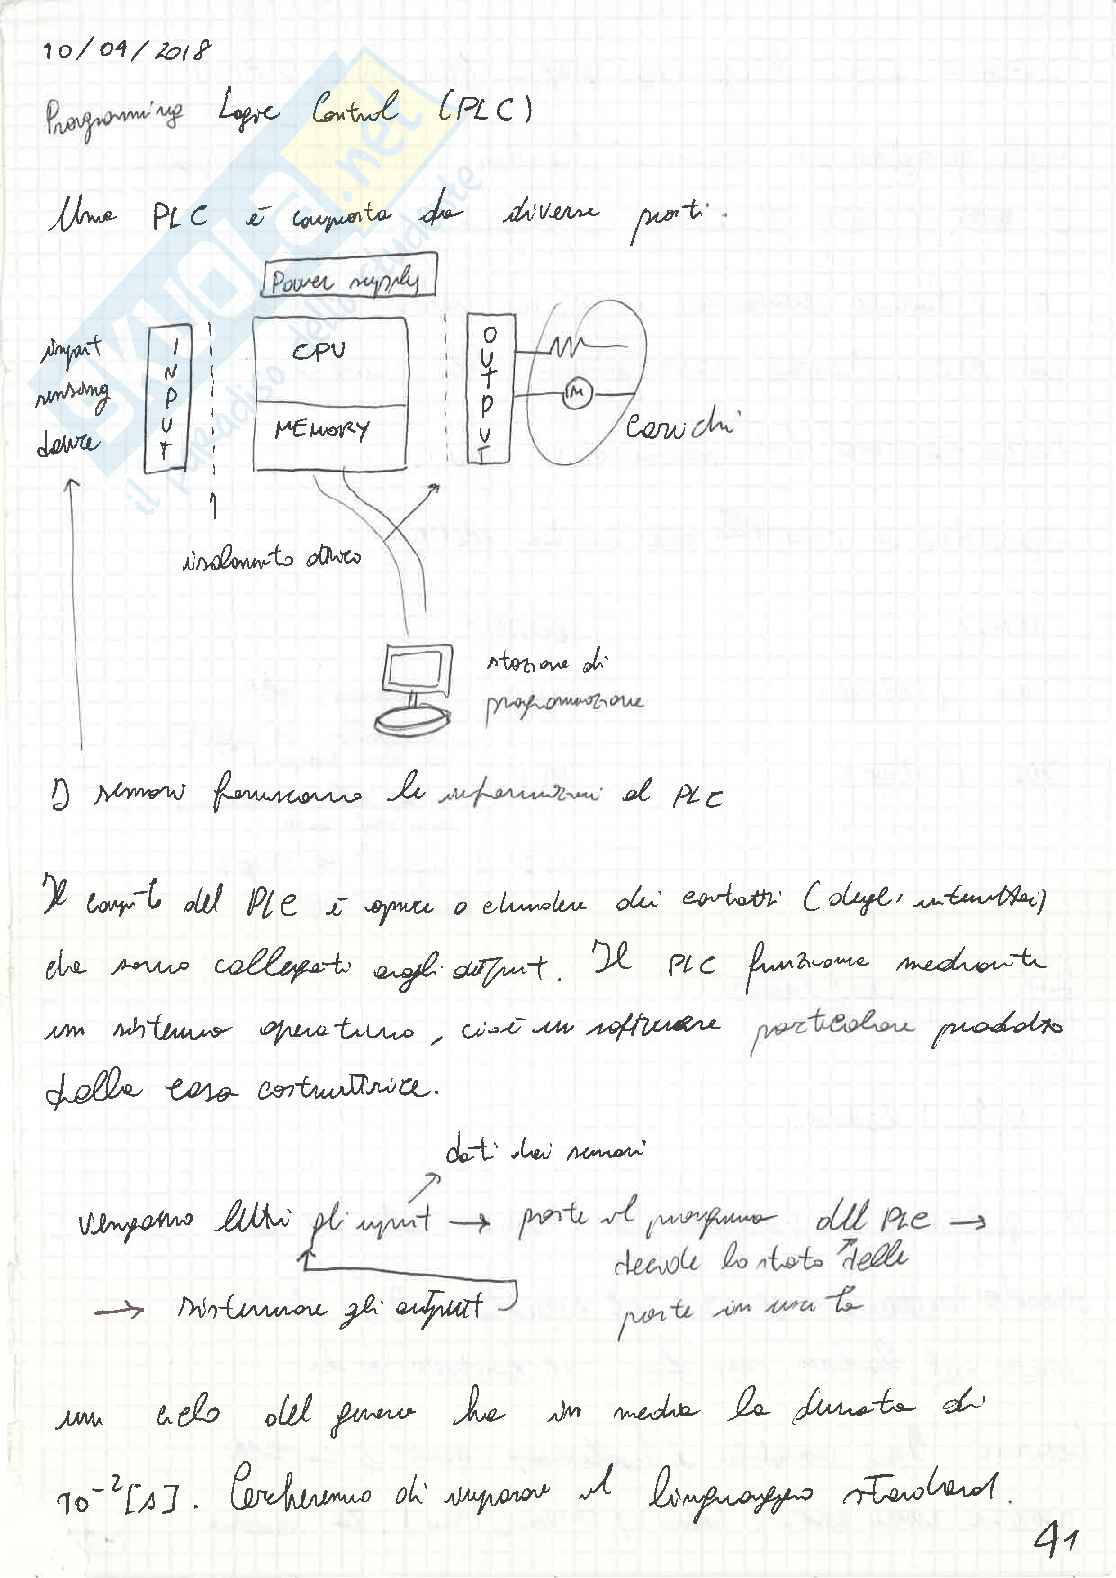 10/04/2018
Programming Logic Control (PLC)
Una PLC è composta da diverse parti.
Power supply
input
sensing
device
INPUT
CPU
MEMORY
OUTPUT
M
carichi
isolamento ottico
stazione di
programmazione
I sensori forniscono le informazioni al PLC
Il compito del PLC è aprire o chiudere dei contatti (degli interruttori)
che sono collegati agli output. Il PLC funziona mediante
un sistema operativo, cioè un software particolare prodotto
dalla casa costruttrice.
dati dai sensori
vengono letti gli input → parte il programma del PLC →
decide lo stato delle
porte in uscita
→ sistemare gli output
un ciclo del genere ha in media la durata di
10⁻²[s]. Cercheremo di imparare il linguaggio standard.
41
skuola.net
il paradiso dello studente